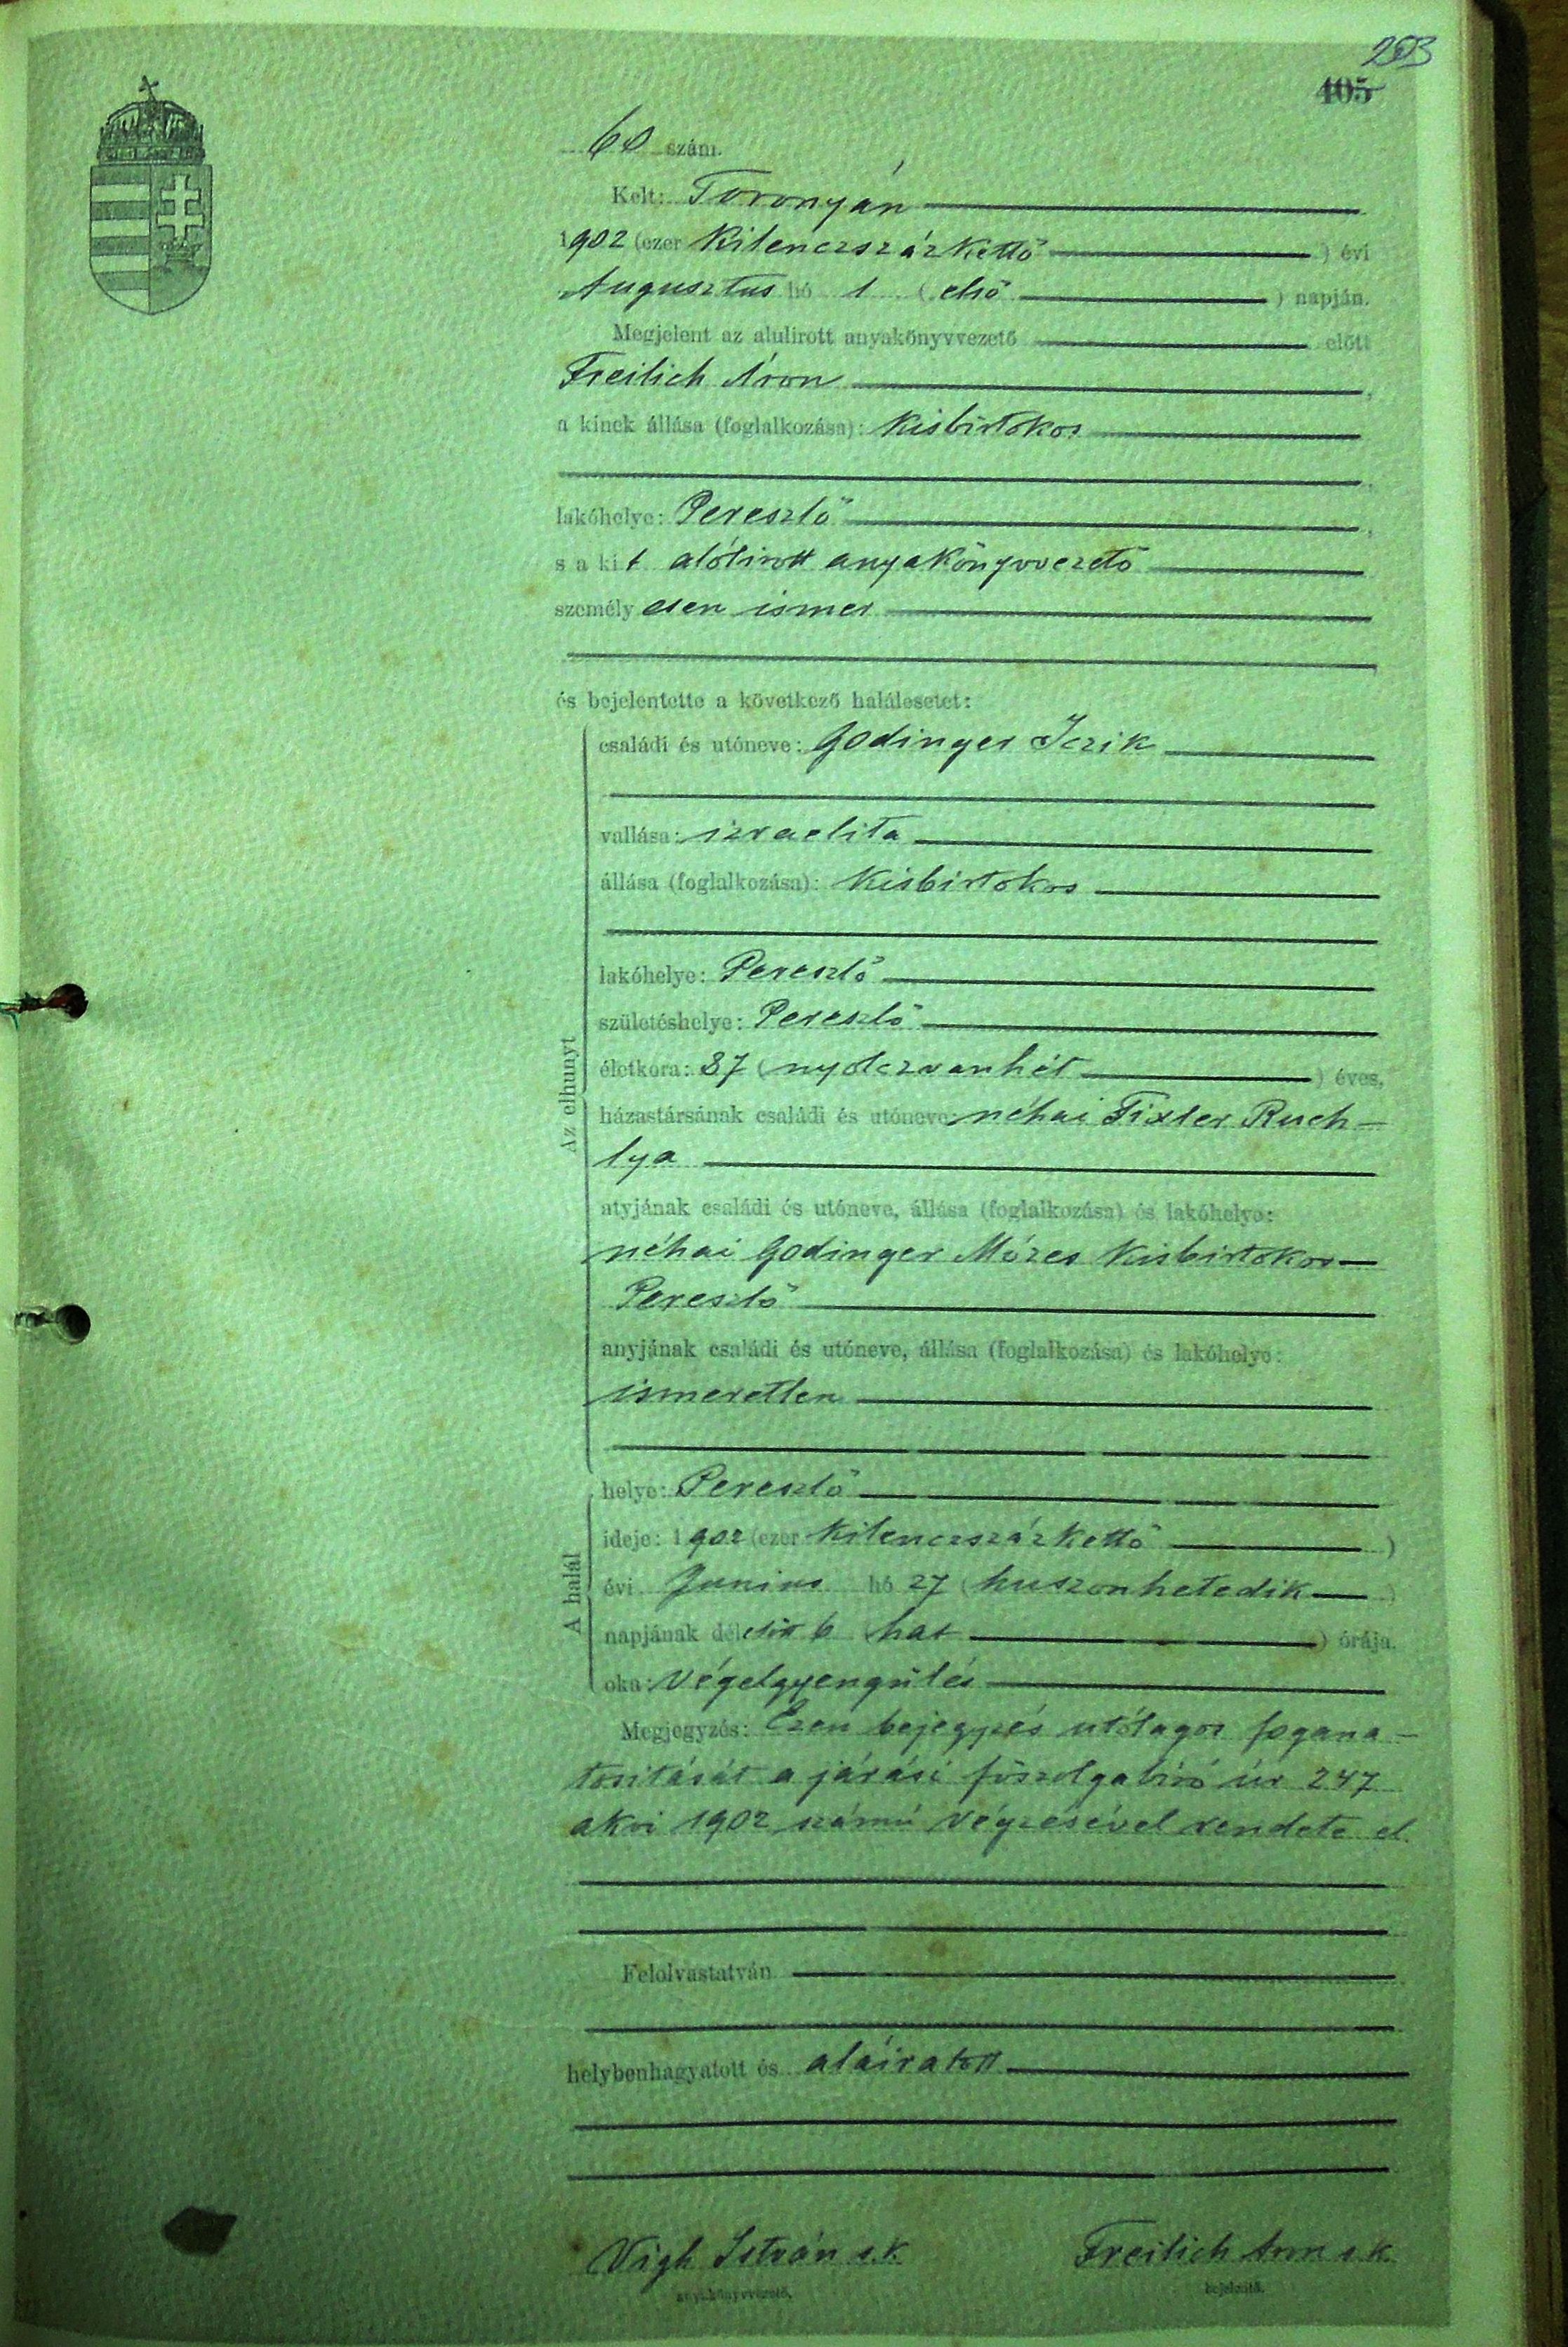 203
405
60 szám.
Kelt: Toronyán
1902 (ezer kilenczszázkettő) évi
Augusztus hó 1 (első) napján.
Megjelent az alulirott anyakönyvvezető előtt
Freilich Áron,
a kinek állása (foglalkozása): kisbirtokos
lakóhelye: Peresztő,
s a kit alólirott anyakönyvvezető
személyesen ismer
és bejelentette a következő halálesetet:
Az elhunyt
családi és utóneve: Godinger Iczik
vallása: izraelita
állása (foglalkozása): kisbirtokos
lakóhelye: Peresztő
születéshelye: Peresztő
életkora: 87 (nyolczvanhét) éves,
házastársának családi és utóneve: néhai Fixler Ruch-
lya
atyjának családi és utóneve, állása (foglalkozása) és lakóhelye:
néhai Godinger Mózes kisbirtokos
Peresztő
anyjának családi és utóneve, állása (foglalkozása) és lakóhelye:
ismeretlen
A halál
helye: Peresztő
ideje: 1902 (ezer kilenczszázkettő)
évi Junius hó 27 (huszonhetedik)
napjának délelőtt 6 (hat) órája.
oka: végelgyengülés
Megjegyzés: Ezen bejegyzés utólagos fogana-
tositását a járási főszolgabiró úr 247
akvi 1902 számú végzésével rendete el.
Felolvastatván
helybenhagyatott és aláiratott
Vigh István s.k. Freilich Áron s.k.
anyakönyvvezető. bejelentő.